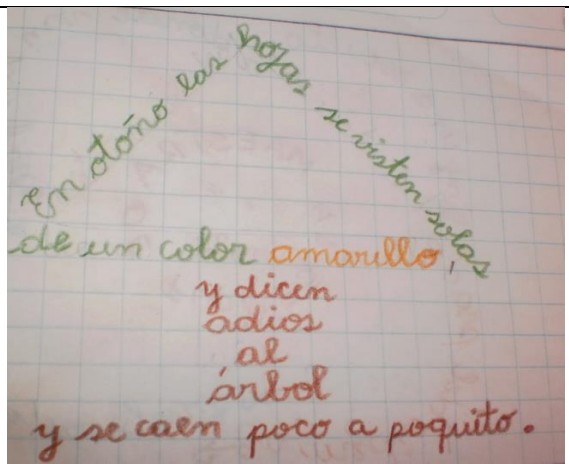 En otoño las hojas se visten solas
de un color amarillo,
y dicen
adios
al
árbol
y se caen poco a poquito.